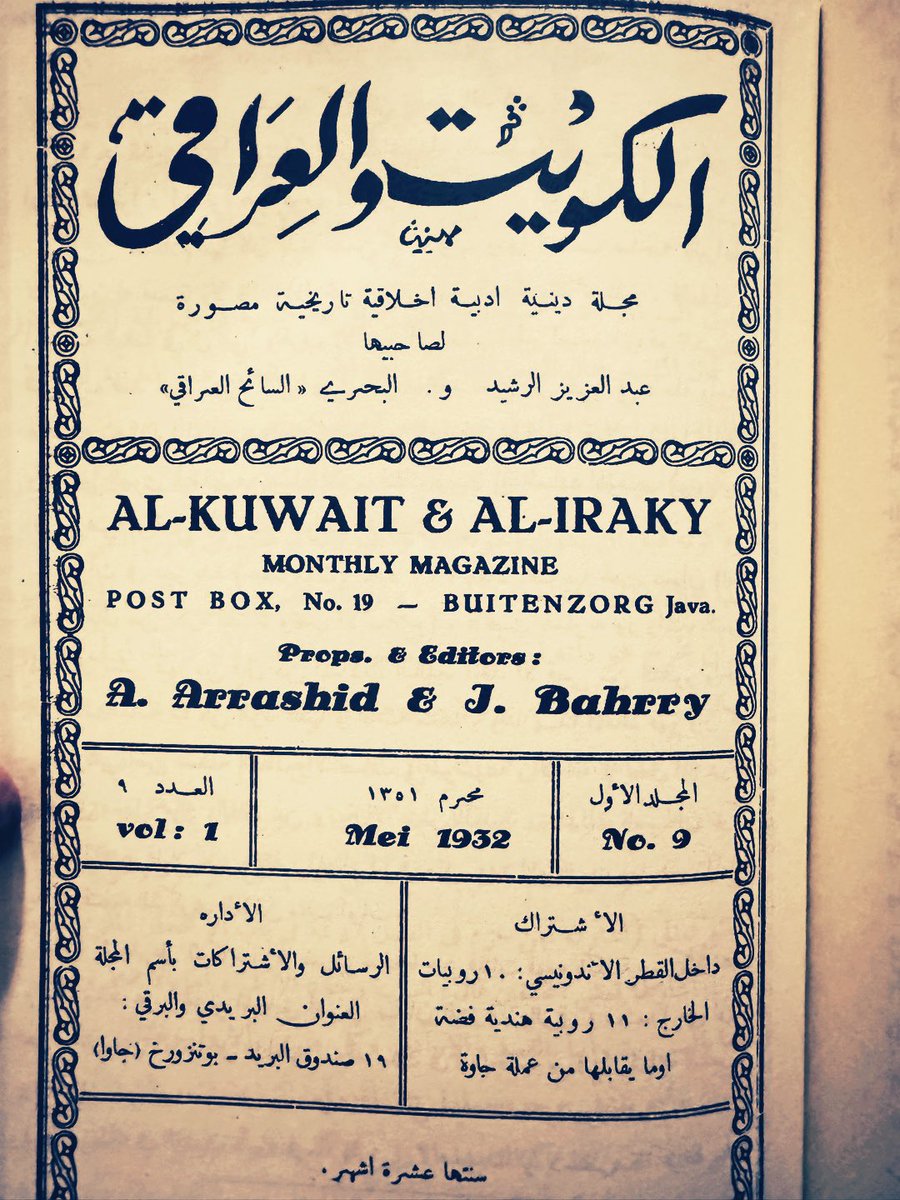 الكويت والعراقي
مجلة دينية ادبية اخلاقية تاريخية مصورة
لصاحبيها
عبد العزيز الرشيد و. البحري « السائح العراقي»
AL-KUWAIT & AL-IRAKY
MONTHLY MAGAZINE
POST BOX, No. 19 — BUITENZORG Java.
Props. & Editors:
A. Arrashid & J. Bahrry
المجلد الأول
No. 9
محرم ١٣٥١
Mei 1932
العدد ٩
vol: 1
الأشتراك
داخل القطر الأندونيسي: ١٠ روبيات
الخارج: ١١ روبية هندية فضة
اوما يقابلها من عملة جاوة
الأداره
الرسائل والأشتراكات بأسم المجلة
العنوان البريدي والبرقي:
١٩ صندوق البريد - بوتنزورخ (جاوا)
سنتها عشرة اشهر.